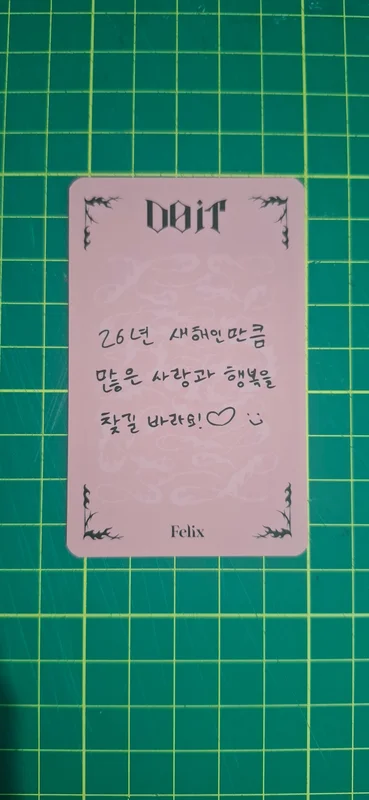 DØiT
26년 새해인만큼
많은 사랑과 행복을
찾길 바라요!♡ :)
Felix